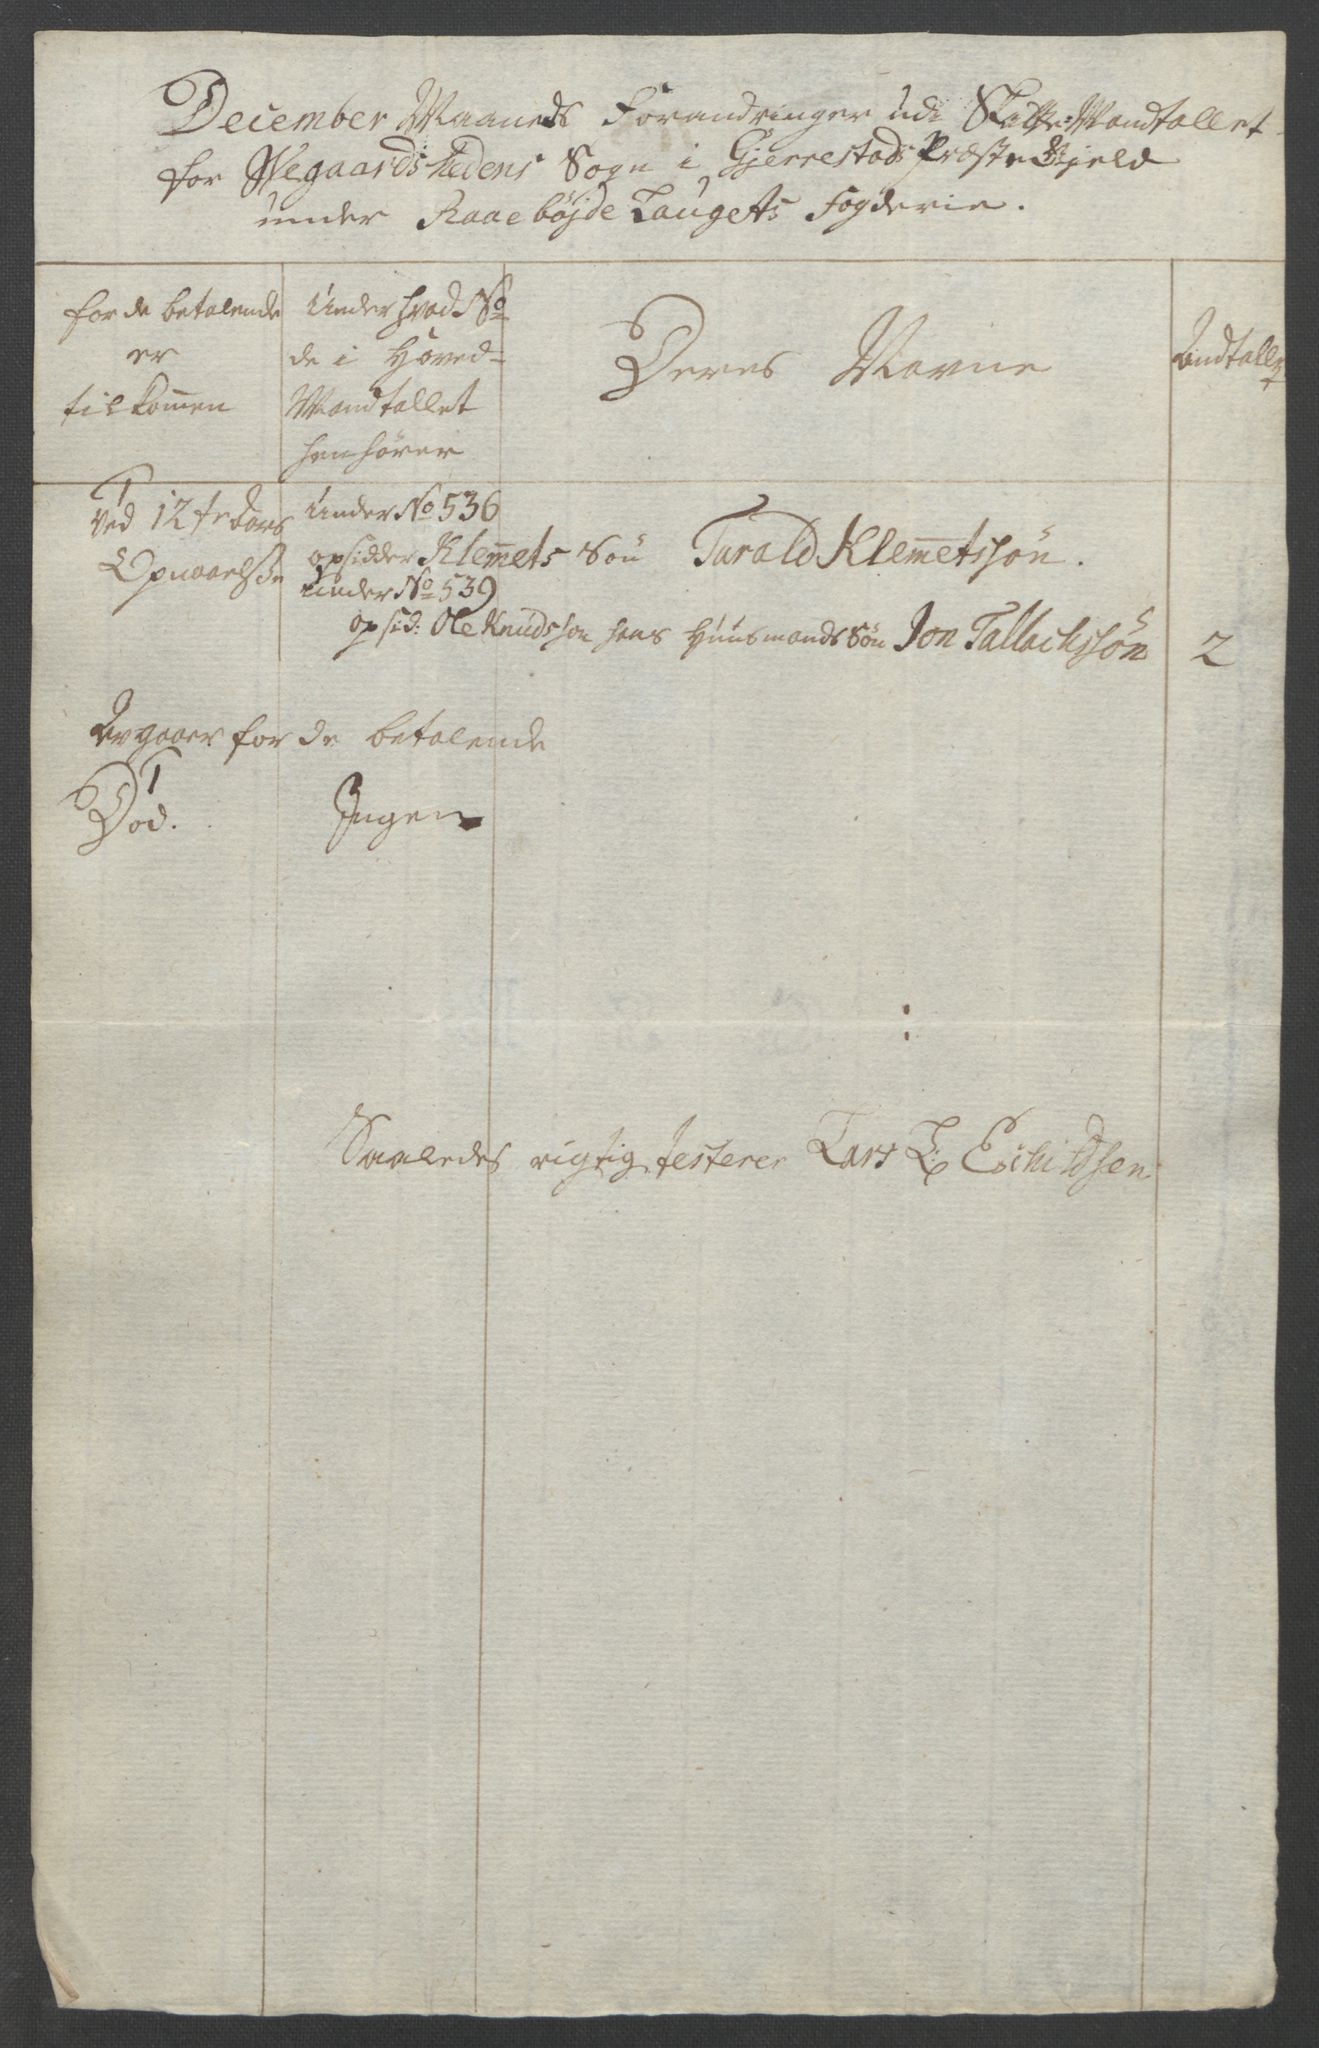 December Maaneds Forandringer udi Skatte-Mandtallet
for Wegaardshedens Sogn i Gjerrestads Præste Gjeld
under Raaebøjde Laugets Fogderie.
for de betalende
er
tilkommen
Under hvad No
de i Hoved-
Mandtallet
henhører
Deres Navne
Andtallet
Ved 12te Aars
Opnaaelse
Under No 536
opsidder Klemmets Søn Tarald Klemmetssøn.
Under No 539
opsid: Ole Knudsson hans Huusmands Søn Jon Tallachssøn 2
Avgaaer for de betalende
Død. Ingen
Saaledes rigtig testerer Lars L: Eschildsen